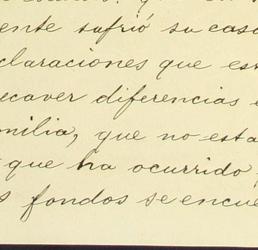 ente sufrió su casa
claraciones que est
ecaver diferencias e
milia, que no esta
que ha ocurrido
s fondos se encue